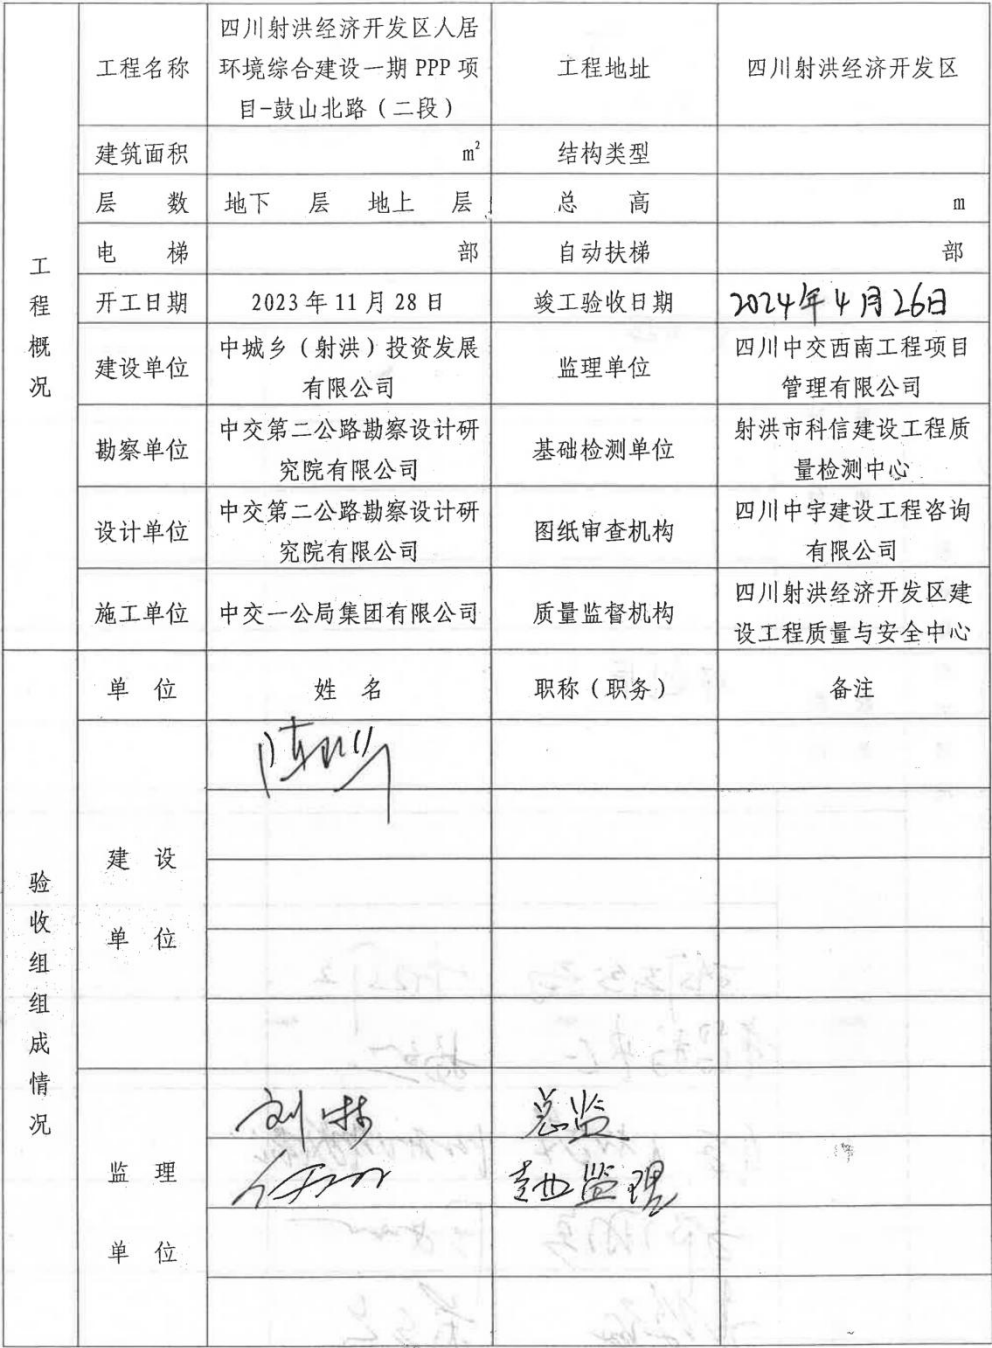 工程概况
工程名称
四川射洪经济开发区人居
环境综合建设一期 PPP 项
目-鼓山北路（二段）
工程地址
四川射洪经济开发区
建筑面积
m²
结构类型
层 数
地下 层 地上 层
总 高
m
电 梯
部
自动扶梯
部
开工日期
2023 年 11 月 28 日
竣工验收日期
2024年4月26日
建设单位
中城乡（射洪）投资发展
有限公司
监理单位
四川中交西南工程项目
管理有限公司
勘察单位
中交第二公路勘察设计研
究院有限公司
基础检测单位
射洪市科信建设工程质
量检测中心
设计单位
中交第二公路勘察设计研
究院有限公司
图纸审查机构
四川中宇建设工程咨询
有限公司
施工单位
中交一公局集团有限公司
质量监督机构
四川射洪经济开发区建
设工程质量与安全中心
验收组组成情况
单 位
姓 名
职称（职务）
备注
建 设
单 位
监 理
单 位
总监
监理